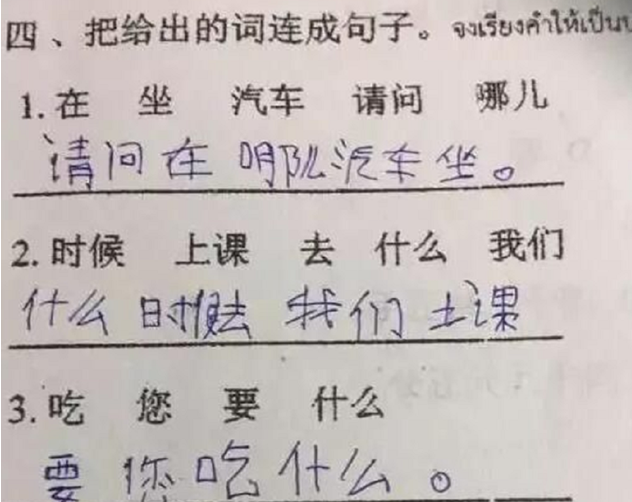 四、把给出的词连成句子。จงเรียงคำให้เป็นป
1.在 坐 汽车 请问 哪儿
请问在哪儿汽车坐。
2.时候 上课 去 什么 我们
什么 时候去 我们 上课
3.吃 您 要 什么
要您吃什么。